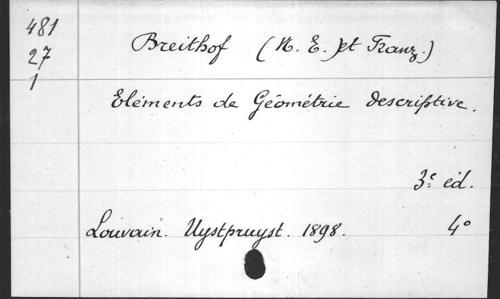 481
27
1
Breithof (N. E.) et Franz.)
Eléments de Géométrie descriptive.
3e éd.
Louvain. Uystpruyst. 1898. 4°